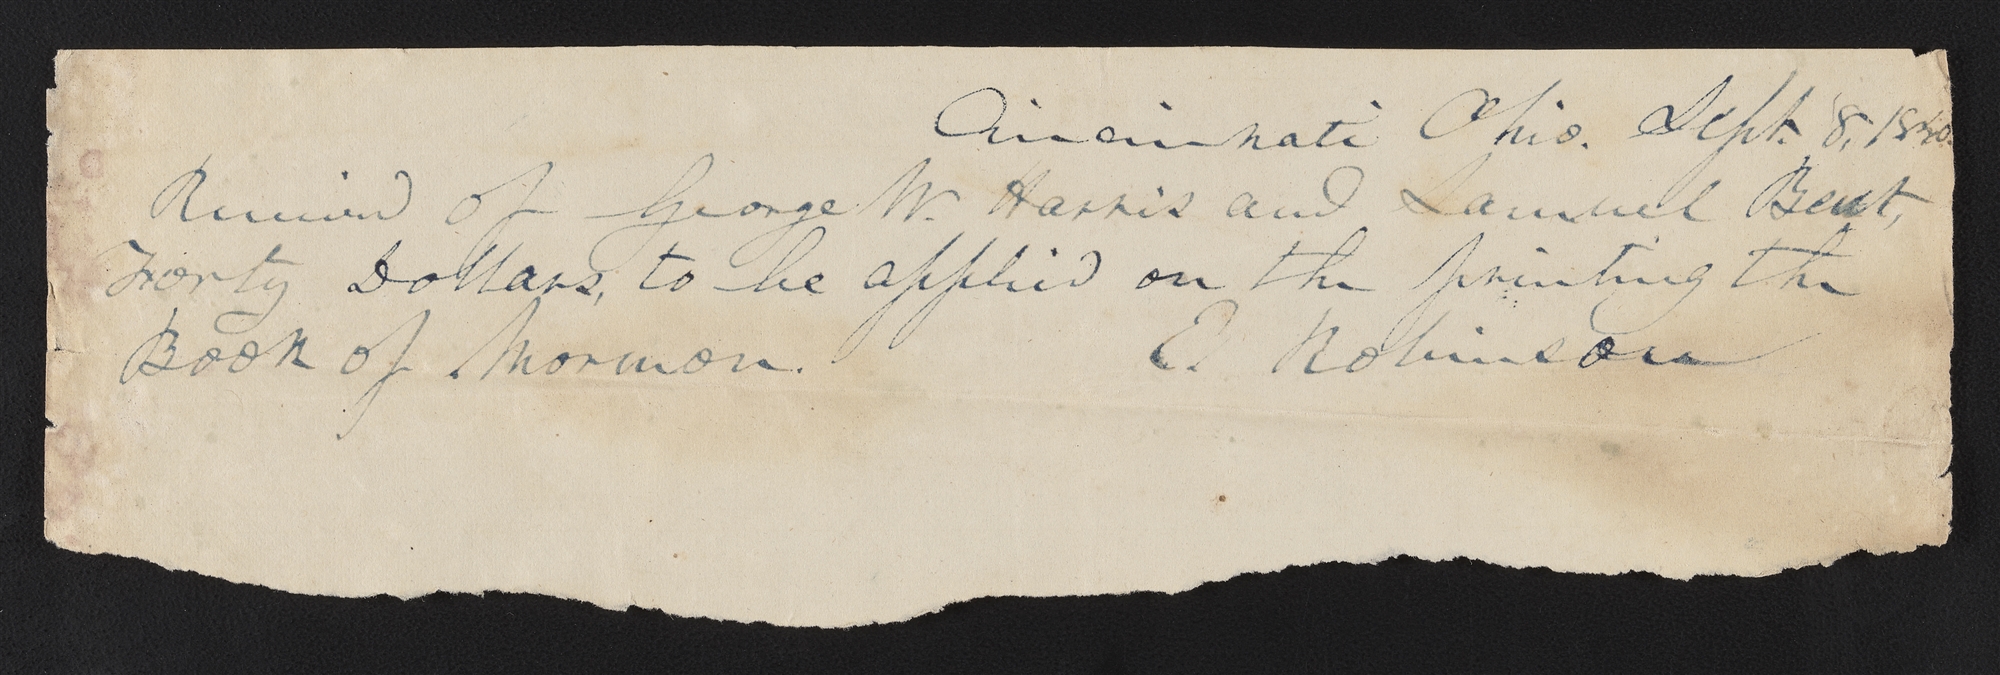 Cincinnati Ohio. Sept. 8, 1840.
Received of George W. Harris and Samuel Bent,
Forty Dollars, to be applied on the printing the
Book of Mormon. E. Robinson